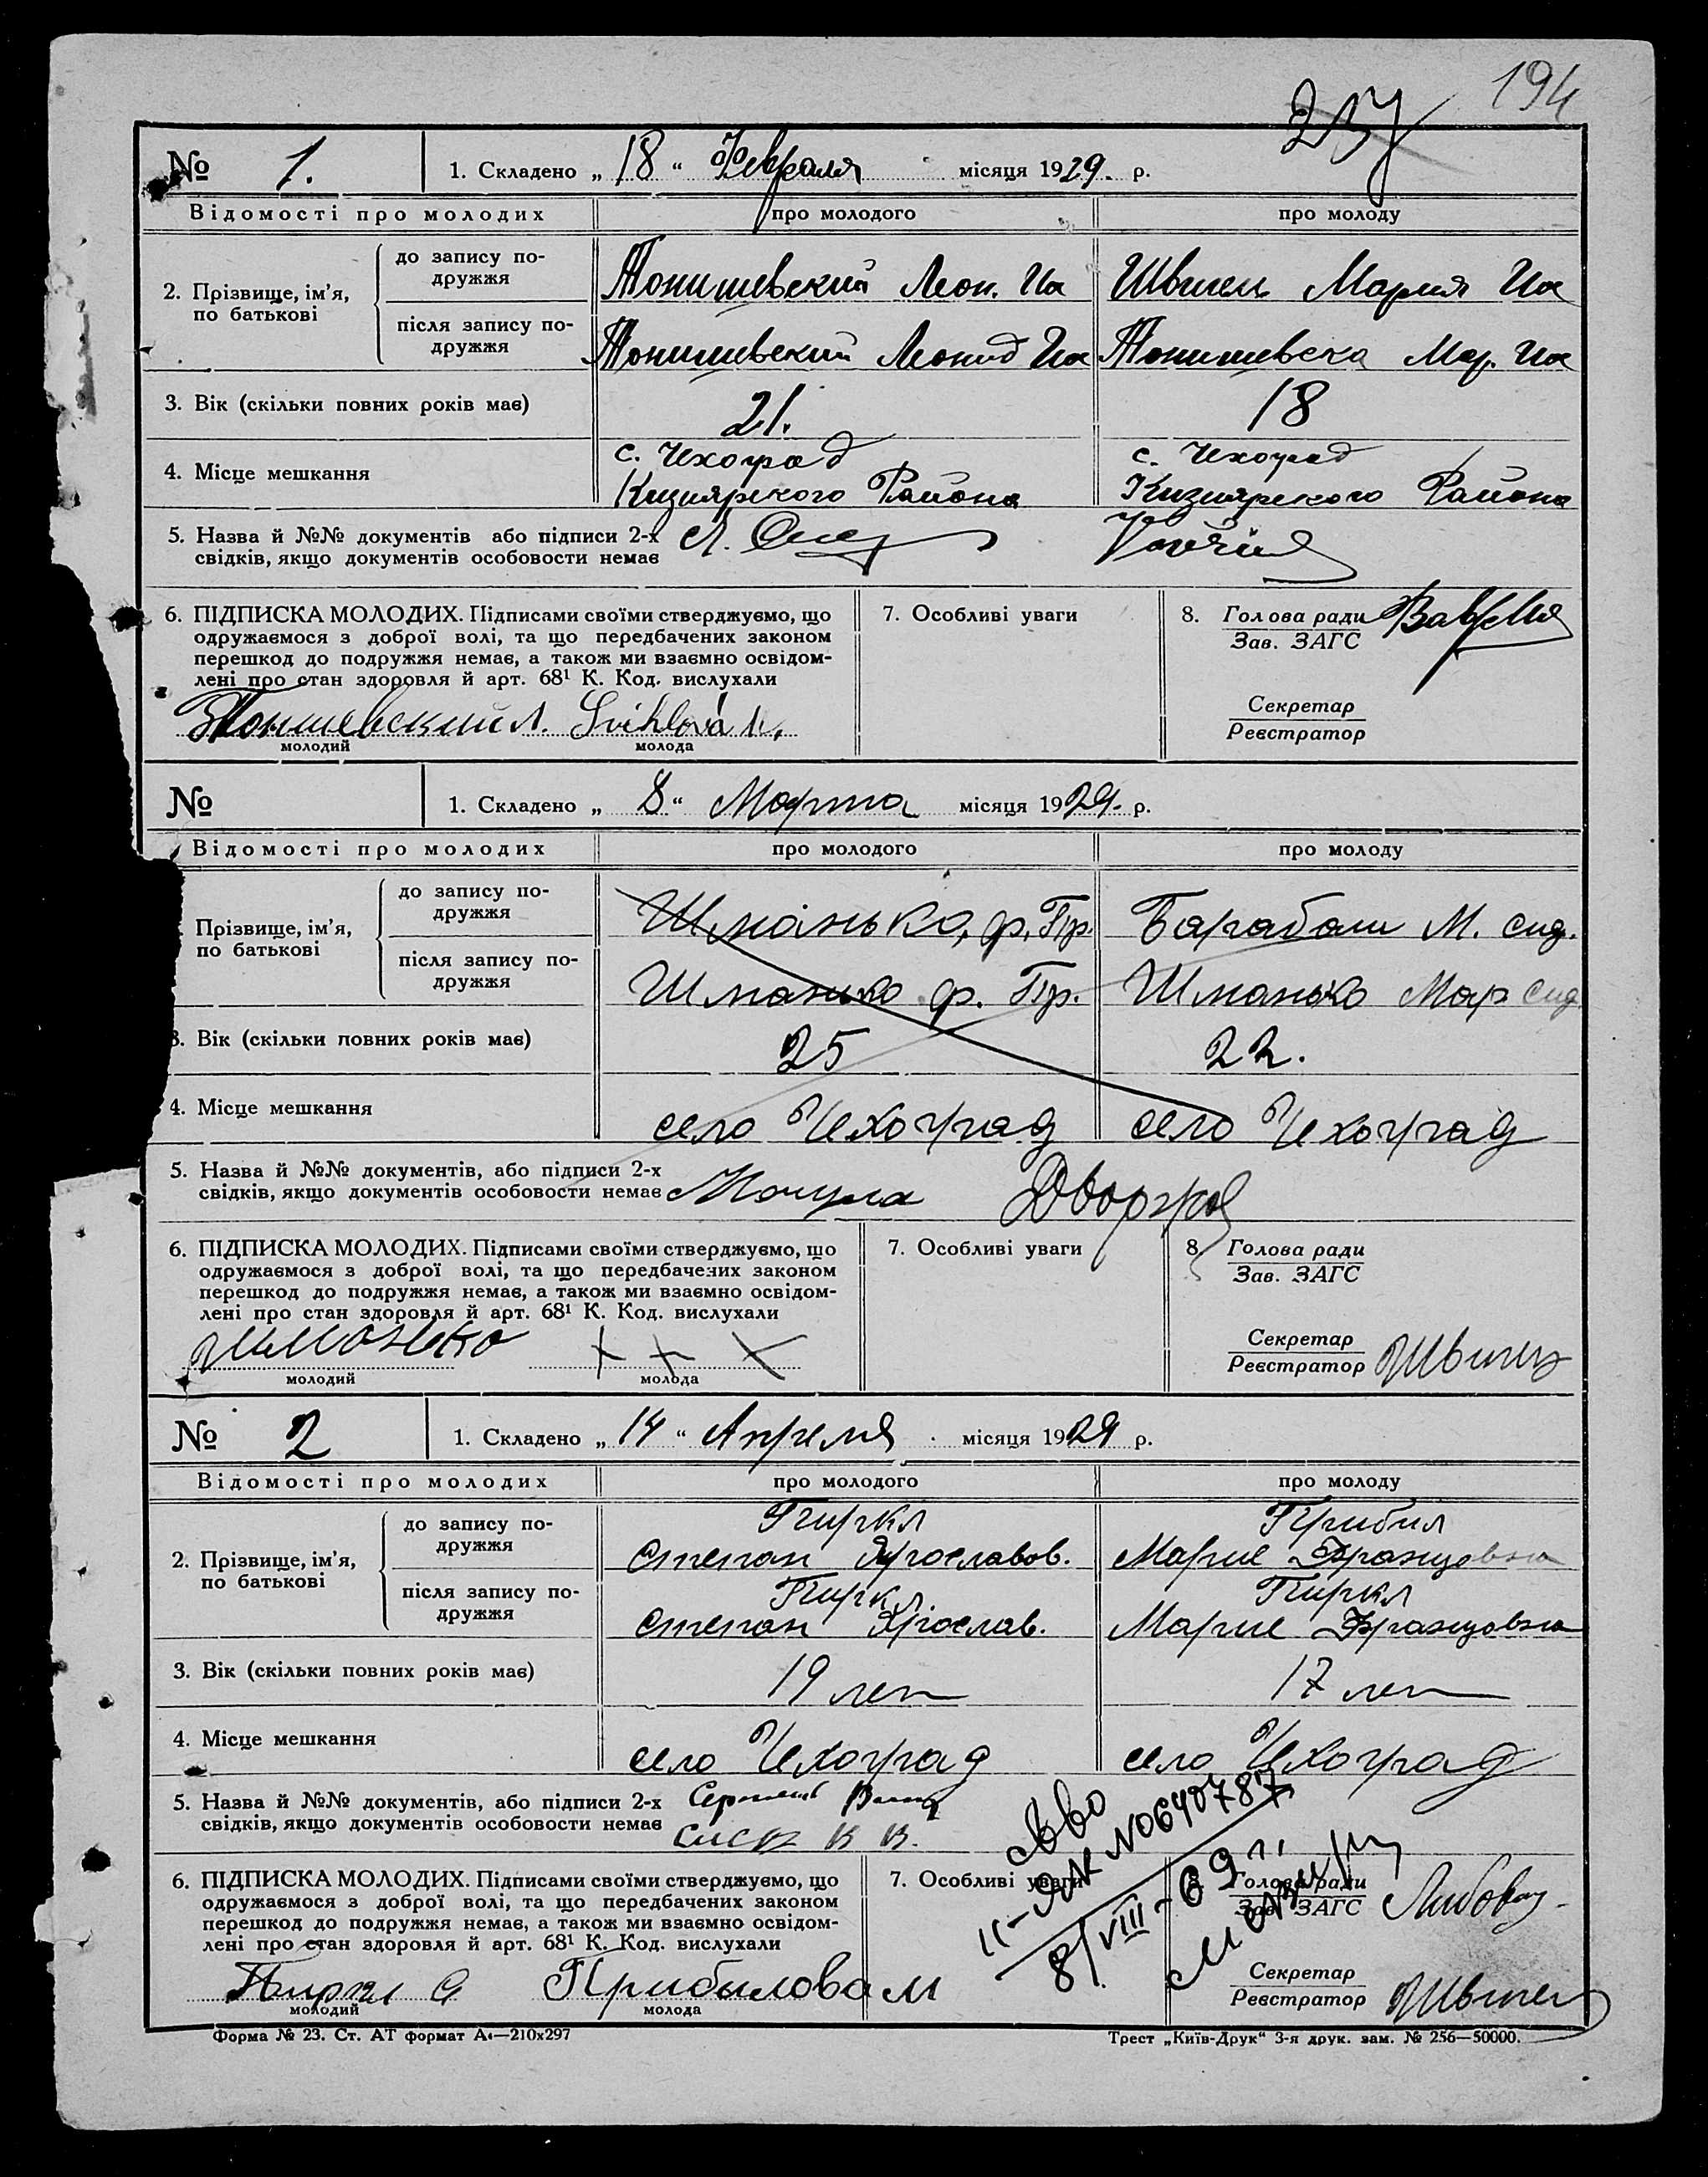 194
№ 1. 1. Складено „ 18 “ Февраля місяця 1929. р.
Відомості про молодих про молодого про молоду
2. Прізвище, ім’я, по батькові
до запису по-
дружжя
Тонишевский Леон. Ив Швигель Мария Ив
після запису по-
дружжя
Тонишевский Леонид Ив Тонишевска Мар. Ив
3. Вік (скільки повних років має) 21. 18
4. Місце мешкання
с. Чехоград с. Чехоград
Кизиярского Района Кизиярского Района
5. Назва й №№ документів або підписи 2-х
свідків, якщо документів особовости немає
6. ПІДПИСКА МОЛОДИХ. Підписами своїми стверджуємо, що
одружаємося з доброї волі, та що передбачених законом
перешкод до подружжя немає, а також ми взаємно освідом-
лені про стан здоровля й арт. 68¹ К. Код. вислухали
Тонишевский Л. Svihlová M.
молодий молода
7. Особливі уваги
8. Голова ради
Зав. ЗАГС
Секретар
Реєстратор
№ 1. Складено „ 8 “ Марта місяця 1929. р.
Відомості про молодих про молодого про молоду
Прізвище, ім’я,
по батькові
до запису по-
дружжя
Шманько, ф. Гр. Барабаш М. Сид.
після запису по-
дружжя
Шманько ф. Гр. Шманько Мар Сид.
3. Вік (скільки повних років має) 25 22.
4. Місце мешкання село Чехоград село Чехоград
5. Назва й №№ документів, або підписи 2-х
свідків, якщо документів особовости немає
6. ПІДПИСКА МОЛОДИХ. Підписами своїми стверджуємо, що
одружаємося з доброї волі, та що передбачених законом
перешкод до подружжя немає, а також ми взаємно освідом-
лені про стан здоровля й арт. 68¹ К. Код. вислухали
Шманько + + +
молодий молода
7. Особливі уваги
8. Голова ради
Зав. ЗАГС
Секретар
Реєстратор
№ 2 1. Складено „ 14 “ Апреля місяця 1929 р.
Відомості про молодих про молодого про молоду
2. Прізвище, ім’я,
по батькові
до запису по-
дружжя
Пиркл Прибил
Степан Ярославов. Марие Францовна
після запису по-
дружжя
Пиркл Пиркл
Степан Ярослав. Марие Францовна
3. Вік (скільки повних років має) 19 лет 17 лет
4. Місце мешкання село Чехоград село Чехоград
5. Назва й №№ документів, або підписи 2-х
свідків, якщо документів особовости немає
6. ПІДПИСКА МОЛОДИХ. Підписами своїми стверджуємо, що
одружаємося з доброї волі, та що передбачених законом
перешкод до подружжя немає, а також ми взаємно освідом-
лені про стан здоровля й арт. 68¹ К. Код. вислухали
Пиркл С Прибилова М
молодий молода
7. Особливі уваги
с-во
II-ЯК №0640787
8/VIII-69 г.
8. Голова ради
Зав. ЗАГС
Секретар
Реєстратор
Форма № 23. Ст. АТ формат А₄—210х297
Трест „Київ-Друк“ 3-я друк. зам. № 256—50000.